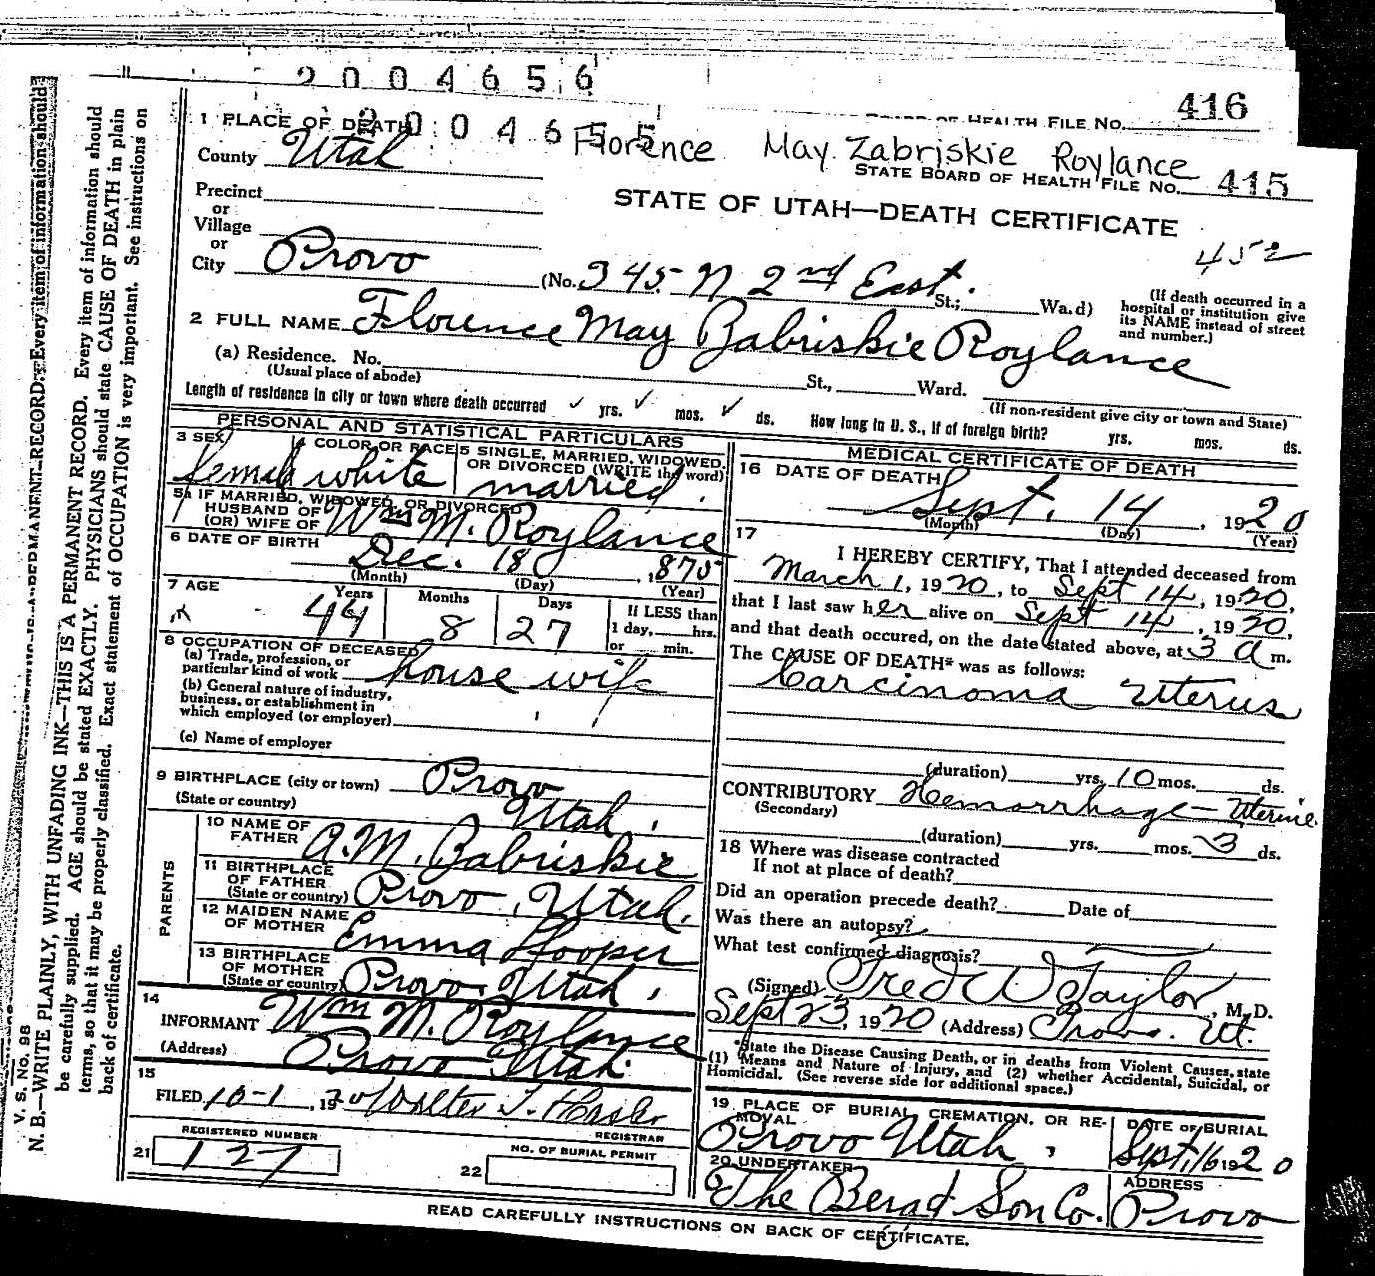 2004656
416
BOARD OF HEALTH FILE NO.
1 PLACE OF DEATH
2004655
Florence May Zabriskie Roylance
County Utah
STATE BOARD OF HEALTH FILE NO. 415
STATE OF UTAH—DEATH CERTIFICATE
452
Precinct
or
Village
or
City Provo (No. 345 N 2nd East. St.; Ward)
(If death occurred in a hospital or institution give its NAME instead of street and number.)
2 FULL NAME Florence May Zabriskie Roylance
(a) Residence. No. St., Ward.
(Usual place of abode)
(If non-resident give city or town and State)
Length of residence in city or town where death occurred ✓ yrs. ✓ mos. ✓ ds. How long in U. S., if of foreign birth? yrs. mos. ds.
PERSONAL AND STATISTICAL PARTICULARS
3 SEX female
4 COLOR OR RACE white
5 SINGLE, MARRIED, WIDOWED, OR DIVORCED (WRITE the word) married.
5a IF MARRIED, WIDOWED, OR DIVORCED
HUSBAND OF
(OR) WIFE OF Wm M. Roylance
6 DATE OF BIRTH Dec. 18, 1875
(Month) (Day) (Year)
7 AGE Years 44 Months 8 Days 27
If LESS than 1 day, hrs. or min.
8 OCCUPATION OF DECEASED
(a) Trade, profession, or particular kind of work house wife
(b) General nature of industry, business, or establishment in which employed (or employer)
(c) Name of employer
9 BIRTHPLACE (city or town) Provo
(State or country) Utah.
PARENTS
10 NAME OF FATHER A.M. Zabriskie
11 BIRTHPLACE OF FATHER (State or country) Provo, Utah.
12 MAIDEN NAME OF MOTHER Emma Hooper
13 BIRTHPLACE OF MOTHER (State or country) Provo, Utah.
14
INFORMANT Wm M. Roylance
(Address) Provo Utah.
15
FILED 10-1, 1920 Walter T. Hasler
REGISTRAR
REGISTERED NUMBER
21 127
NO. OF BURIAL PERMIT
22
MEDICAL CERTIFICATE OF DEATH
16 DATE OF DEATH
Sept. 14, 1920
(Month) (Day) (Year)
17
I HEREBY CERTIFY, That I attended deceased from
March 1, 1920, to Sept 14, 1920,
that I last saw her alive on Sept 14, 1920,
and that death occured, on the date stated above, at 3 a m.
The CAUSE OF DEATH* was as follows:
Carcinoma Uterus
(duration) yrs. 10 mos. ds.
CONTRIBUTORY Hemorrhage — Uterine
(Secondary)
(duration) yrs. mos. 3 ds.
18 Where was disease contracted
If not at place of death?
Did an operation precede death? Date of
Was there an autopsy?
What test confirmed diagnosis?
(Signed) Fred W Taylor, M.D.
Sept 23, 1920 (Address) Provo. Ut.
*State the Disease Causing Death, or in deaths from Violent Causes, state
(1) Means and Nature of Injury, and (2) whether Accidental, Suicidal, or
Homicidal. (See reverse side for additional space.)
19 PLACE OF BURIAL, CREMATION, OR REMOVAL
Provo Utah,
DATE of BURIAL
Sept, 16 1920
20 UNDERTAKER
The Berad Son Co.
ADDRESS
Provo
READ CAREFULLY INSTRUCTIONS ON BACK OF CERTIFICATE.
V. S. No. 98
N. B.—WRITE PLAINLY, WITH UNFADING INK—THIS IS A PERMANENT RECORD. Every item of information should
be carefully supplied. AGE should be stated EXACTLY. PHYSICIANS should state CAUSE OF DEATH in plain
terms, so that it may be properly classified. Exact statement of OCCUPATION is very important. See instructions on
back of certificate.